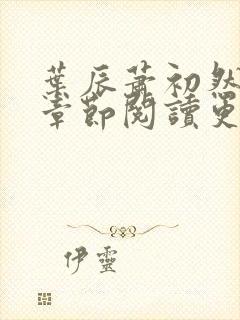 葉辰蕭初然
章節閱讀更
伊靈